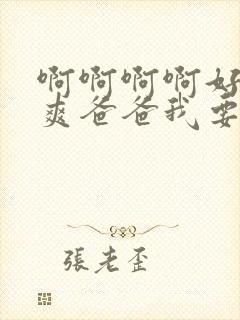 啊啊啊啊好
爽爸爸我要
張老歪